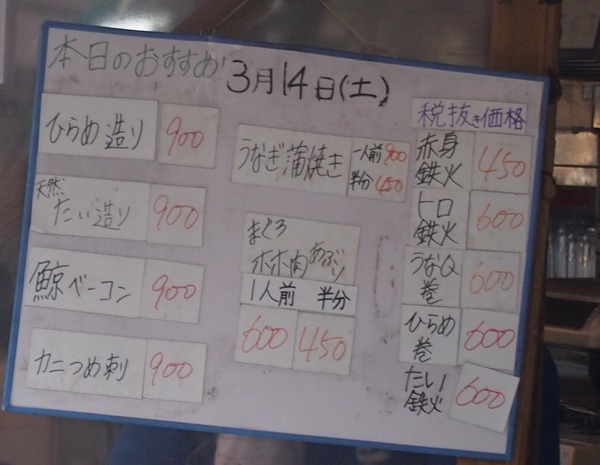 本日のおすすめ
3月14日(土)
税抜き価格
ひらめ造り 900
天然
たい造り 900
鯨ベーコン 900
カニつめ刺 900
うなぎ蒲焼き 一人前 900
半分 450
まぐろ
ホホ肉あぶり
1人前 半分
600 450
赤身
鉄火 450
トロ
鉄火 600
うなQ
巻 600
ひらめ
巻 600
たい
鉄火 600